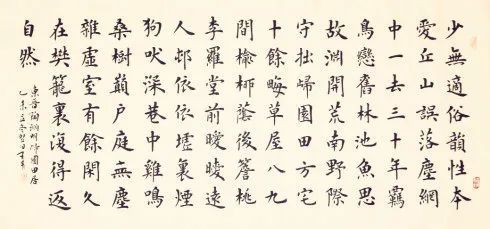 少無適俗韻性本
愛丘山誤落塵網
中一去三十年羈
鳥戀舊林池魚思
故淵開荒南野際
守拙歸園田方宅
十餘畮草屋八九
間榆柳蔭後簷桃
李羅堂前曖曖遠
人邨依依墟裏煙
狗吠深巷中雞鳴
桑樹顛戶庭無塵
雜虛室有餘閑久
在樊籠裏復得返
自然
東晉陶淵明歸園田居
乙未孟冬